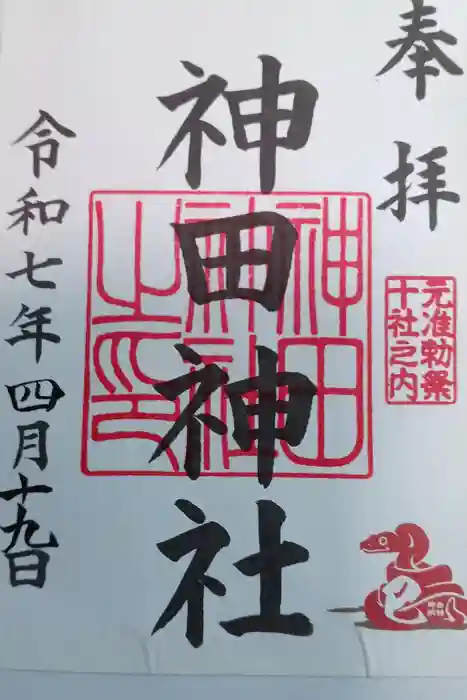 奉拝
元准勅祭
十社之内
神田神社
神田
神社
之印
令和七年四月十九日
巳